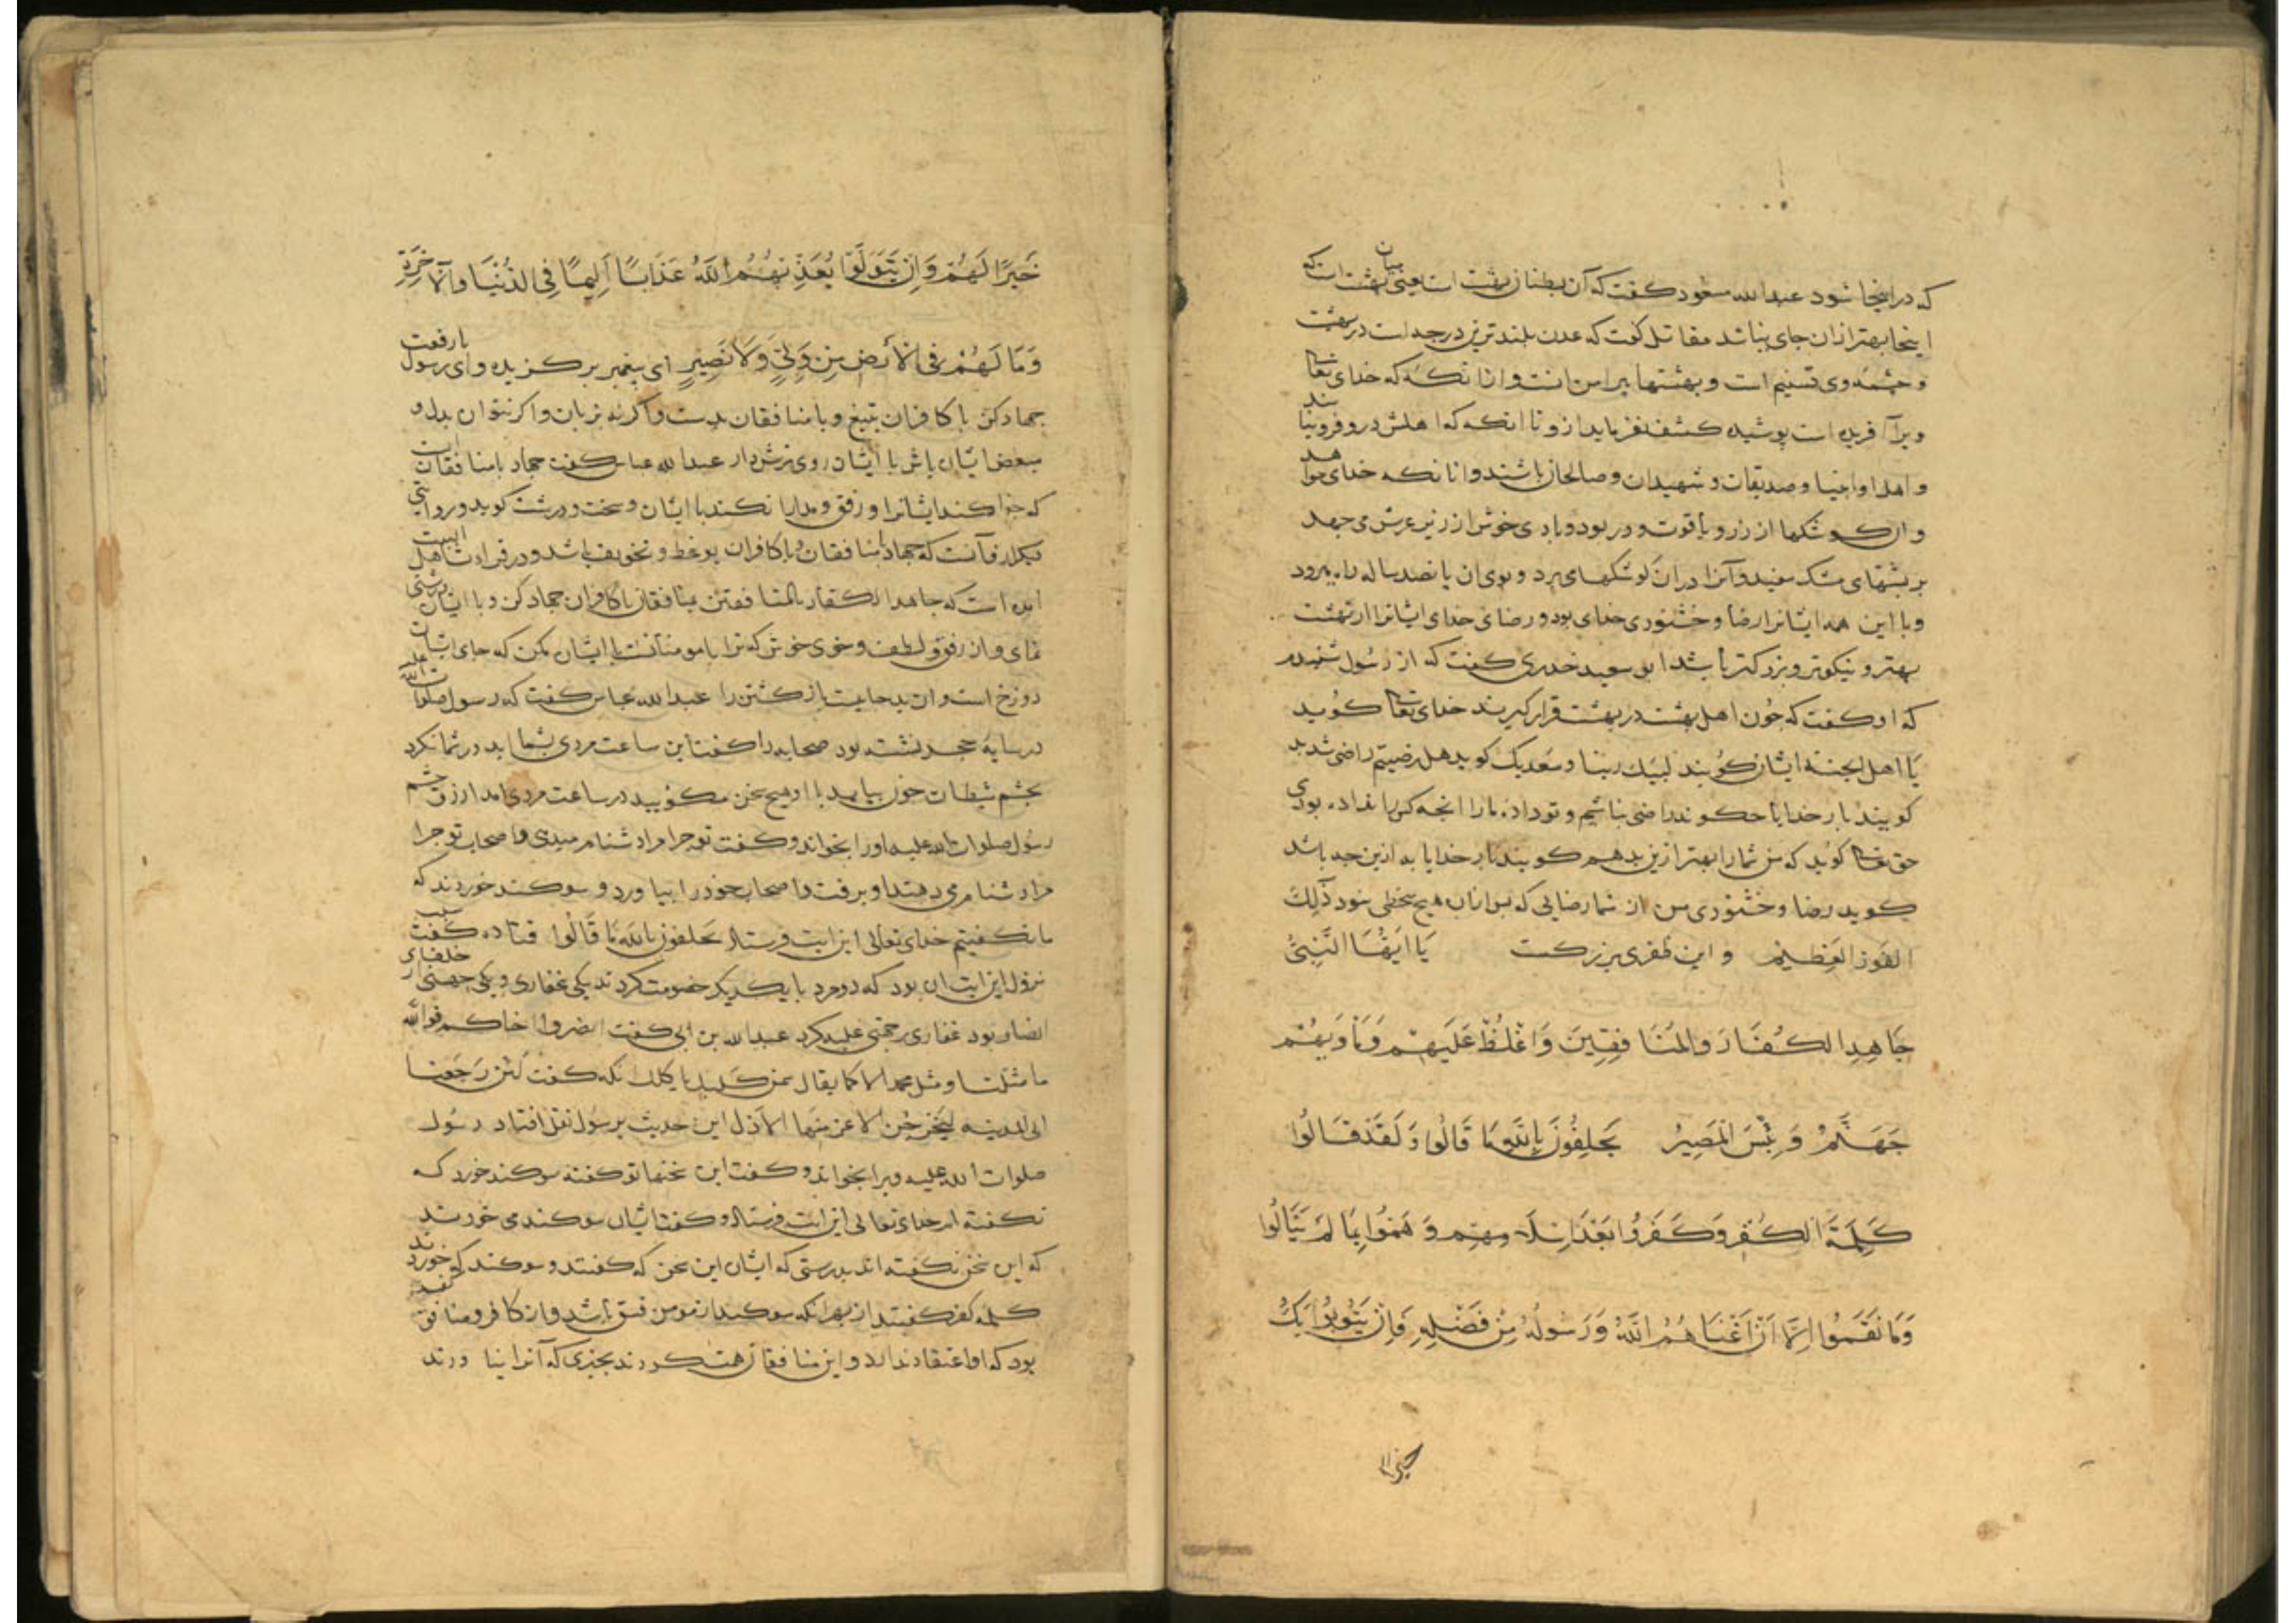 که در اینجا شود عبدالله مسعود کفت که آن بطنان بهشت است یعنی میان بهشت است که
اینجا بهتر از ان جای نباشد مقاتل کفت که عدن بلندترین درجه است در بهشت
و چشمه وی تسنیم است و بهشتها پیرامن انست و از انکه که خدای تعالی
ویرا آفریده است پوشیده کشف نفرماید از و تا انکه که اهلش درو فرو ایند
و اهل او انبیا و صدیقان و شهیدان و صالحان باشند و انانکه خدای خواهد
و ان کوشکها از زر و یاقوت و در بود و بادی خوش از زیر عرش می جهد
بر پشتهای مشک سفید و آنرا در ان کوشکها می برد و بوی ان پانصد ساله راه برود
و با این همه ایشانرا رضا و خشنودی خدای بود و رضای خدای ایشانرا از بهشت
بهتر و نیکوتر و بزرکتر باشد ابو سعید خدری کفت که از رسول شنیدم
که او کفت که چون اهل بهشت در بهشت قرار کیرند خدای تعالی کوید
یا اهل الجنة ایشان کویند لبیک ربنا و سعدیک کوید هل رضیتم راضی شدید
کویند بار خدایا چکونه راضی نباشیم و تو داده ما را انچه کس را نداده بودی
حق تعالی کوید که من شما را بهتر ازین بدهم کویند بار خدایا به ازین چه باشد
کوید رضا و خشنودی من از شما رضایی که پس از ان هیچ سخطی نبود ذَلِكَ
الفَوزُ العَظِیمُ و این ظفری بزرکست یَا اَیُّهَا النَّبِیُّ
جَاهِدِ الکُفَّارَ وَالمُنَافِقِینَ وَاغْلُظْ عَلَیهِمْ وَمَأْوَیهُمْ
جَهَنَّمُ وَبِئْسَ المَصِیرُ یَحلِفُونَ بِاللَّهِ مَا قَالُوا وَلَقَدْ قَالُوا
کَلِمَةَ الکُفْرِ وَکَفَرُوا بَعْدَ اِسْلَامِهِم وَهَمُّوا بِمَا لَمْ یَنَالُوا
وَمَا نَقَمُوا اِلَّا اَنْ اَغْنَاهُمُ اللَّهُ وَرَسُولُهُ مِنْ فَضْلِهِ فَاِنْ یَتُوبُوا یَكُ
خیرا
خَیرًا لَهُمْ وَاِنْ یَتَوَلَّوْا یُعَذِّبْهُمُ اللَّهُ عَذَابًا اَلِیمًا فِی الدُّنْیَا وَالْآخِرَةِ
وَمَا لَهُمْ فِی الْأَرْضِ مِنْ وَلِیٍّ وَلَا نَصِیرٍ ای پیغمبر برکزیده و ای رسول با رفعت
جهاد کن با کافران بتیغ و با منافقان بدست و اکر نه بزبان و اکر نتوان بدل و
مبغض ایشان باش با ایشان روی ترش دار عبدالله عباس کفت جهاد با منافقان انست
که خوار کند ایشانرا و رفق و مدارا نکند با ایشان و سخت و درشت کوید و روایتی
دیکر از و آنست که جهاد با منافقان و با کافران بوعظ و تخویف باشد و در قراءت اهل البیت
امده است که جاهد الکفار بالمنافقین بمنافقان با کافران جهاد کن و با ایشان درشتی
نمای و ان رفق و لطف و خوی خوش که ترا با مومنانست با ایشان مکن که جای ایشان
دوزخ است و ان بد جایست بازکشتن را عبدالله عباس کفت که رسول صلوات الله علیه
در سایهٔ حجره نشسته بود صحابه را کفت این ساعت مردی بشما اید در شما نکرد
بچشم شیطان چون بیامد با او هیچ سخن مکویید در ساعت مردی امد ازرق چشم
رسول صلوات الله علیه او را بخواند و کفت تو چرا مرا دشنام میدهی و اصحاب تو چرا
مرا دشنام می دهند او برفت و اصحاب خود را بیاورد و سوکند خوردند که
ما نکفتیم خدای تعالی این ایت فرستاد یَحلفون بالله مَا قَالُوا قتاده کفت سبب
نزول این ایت ان بود که دو مرد با یکدیکر خصومت کردند یکی غفاری و یکی جهنی از خلفای
انصار بود غفاری بر جهنی غلبه کرد عبدالله بن ابی کفت انصروا اخاکم فوالله
ما مثلنا و مثل محمد الا کما یقال سمن کلبک یاکلک انکه کفت لئن رجعنا
الی المدینه لیخرجن الاعز منها الاذل این حدیث برسول نقل افتاد رسول
صلوات الله علیه ویرا بخواند و کفت این سخنها تو کفتهٔ سوکند خورد که
نکفته ام خدای تعالی این ایت فرستاد و کفت ایشان سوکند می خورند
که این سخن نکفته اند بدرستی که ایشان این سخن که کفتند و سوکند که خوردند
کلمه کفر کفتند از بهر انکه سوکند از مومن فسق باشد و از کافر و منافق کفر
بود که او اعتقاد ندارد و این منافقان همت کردند بچیزی که آنرا نیاورند